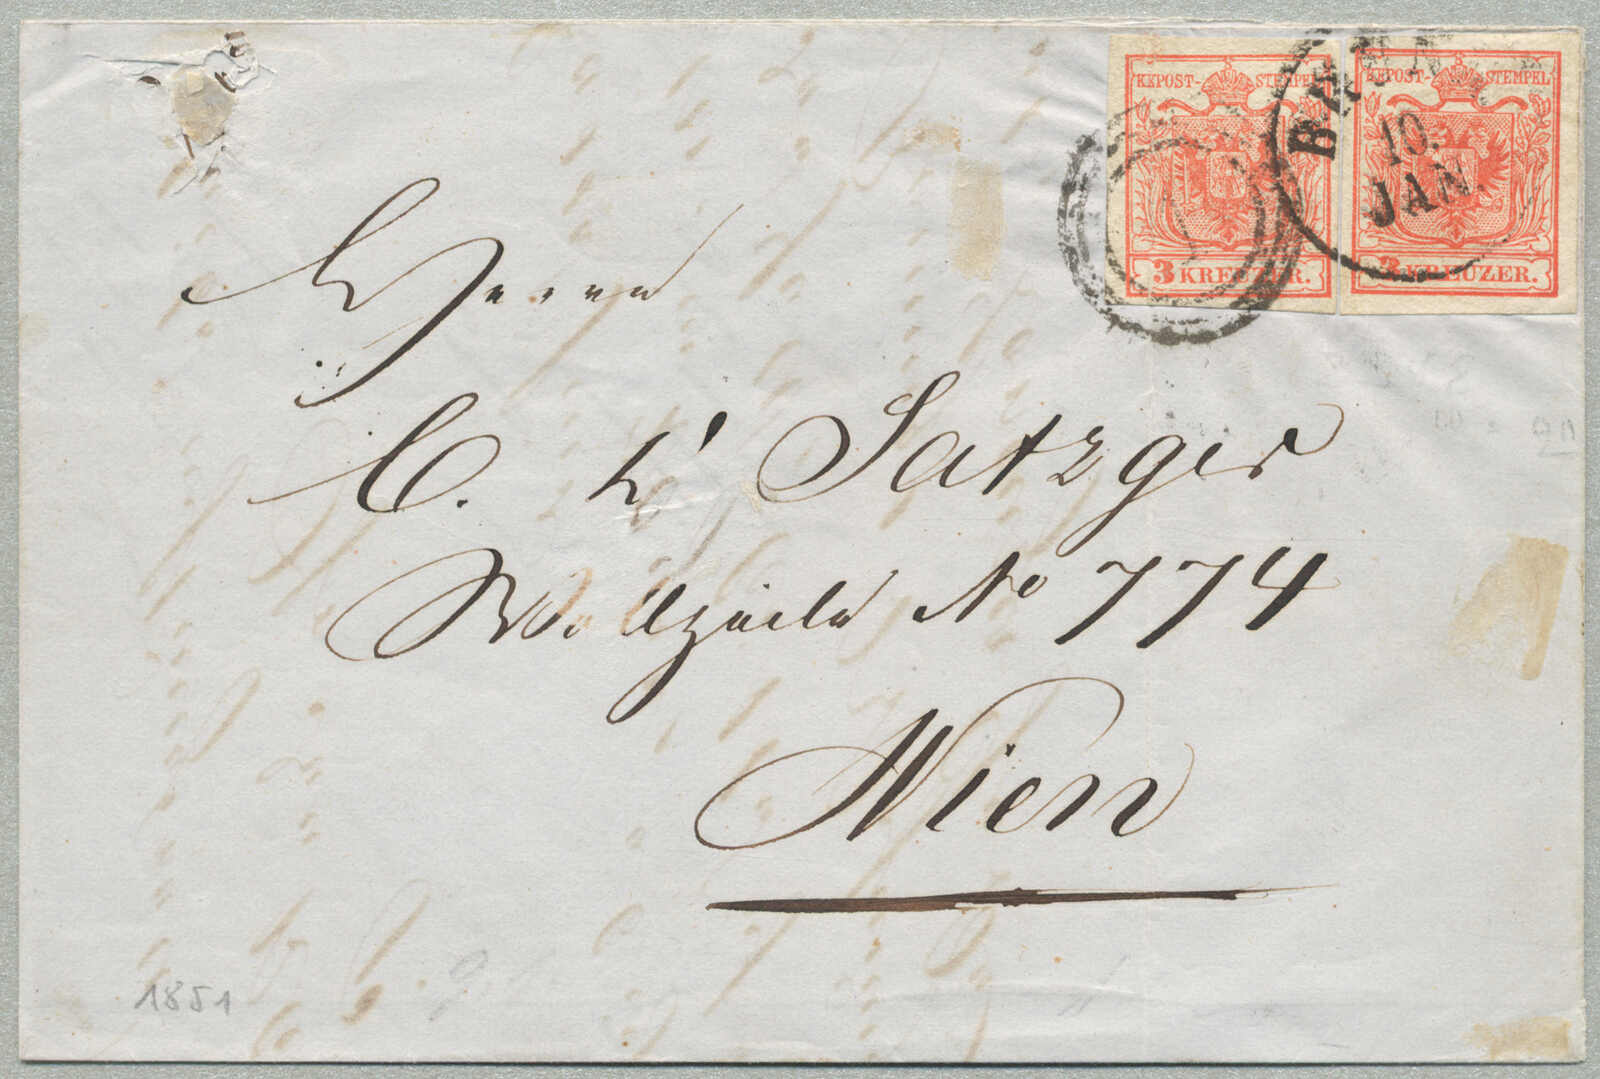 KKPOST-STEMPEL KKPOST-STEMPEL
10.
JAN.
3 KREUZER. 3 KREUZER.
Herrn
C. h' Satzger
Wollzeile No 774
Wien
1851